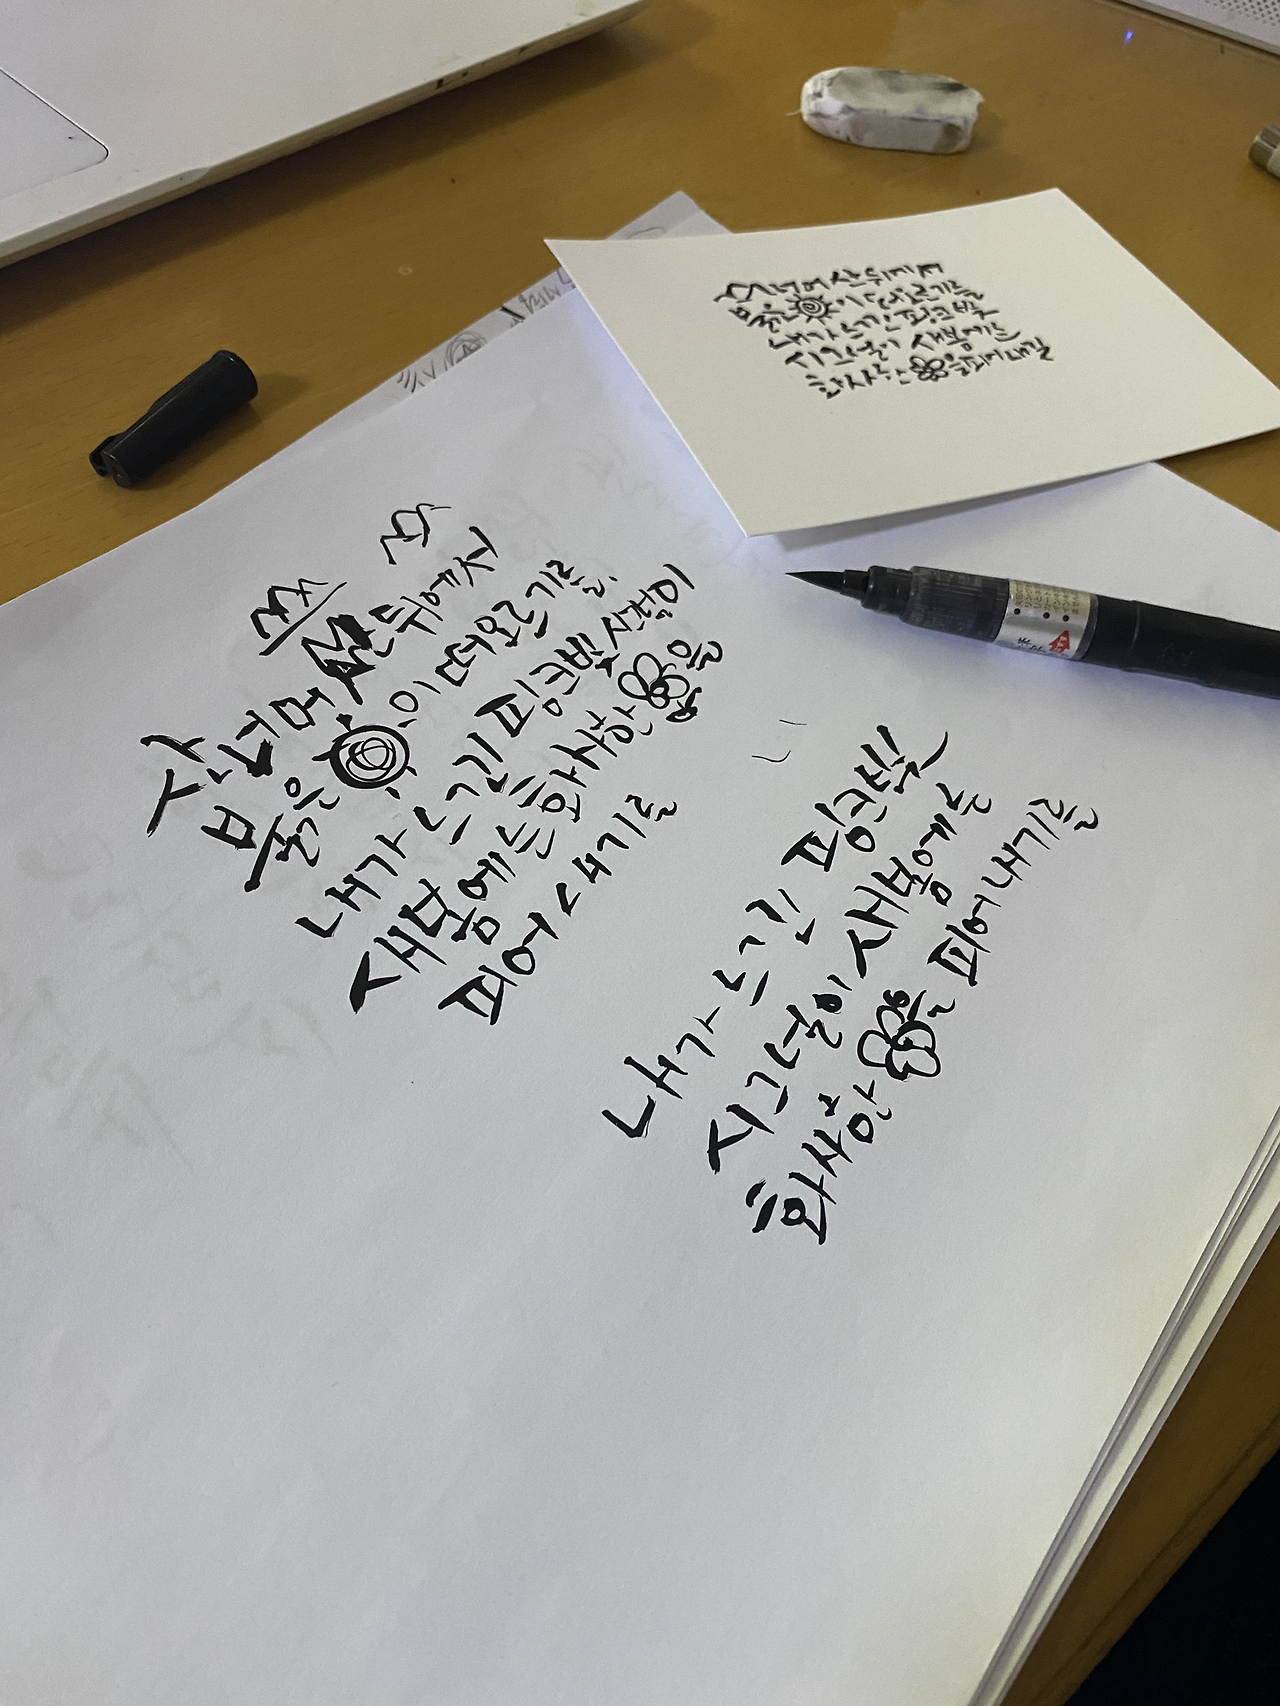 너머 산 뒤에서
붉은 이 떠오르기를
내가 느낀 핑크빛
시그널이 새봄에는
화사한 을 피어내길
산 너머 산 뒤에서
붉은 이 떠오르기를.
내가 느낀 핑크빛 시그널이
새봄에는 화사한 을
피어내기를
내가 느낀 핑크빛
시그널이 새봄에는
화사한 을 피어내기를